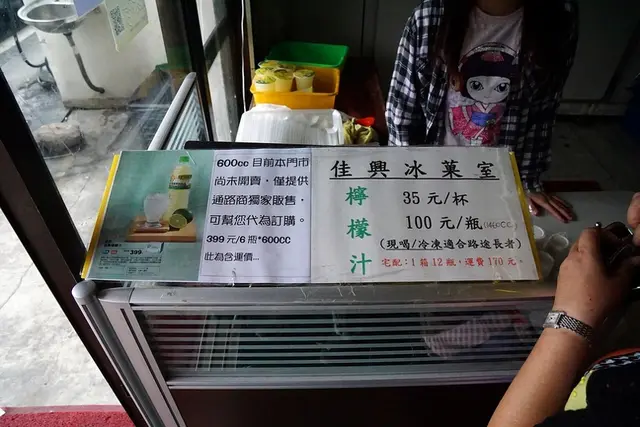 600cc 目前本門市
尚未開賣,僅提供
通路商獨家販售,
可幫您代為訂購。
399 元/6 瓶*600CC
此為含運價...
399
佳興冰菓室
檸檬汁
35 元/杯
100 元/瓶
(現喝/冷凍適合路途長者)
宅配:1 箱 12 瓶,運費 170 元。